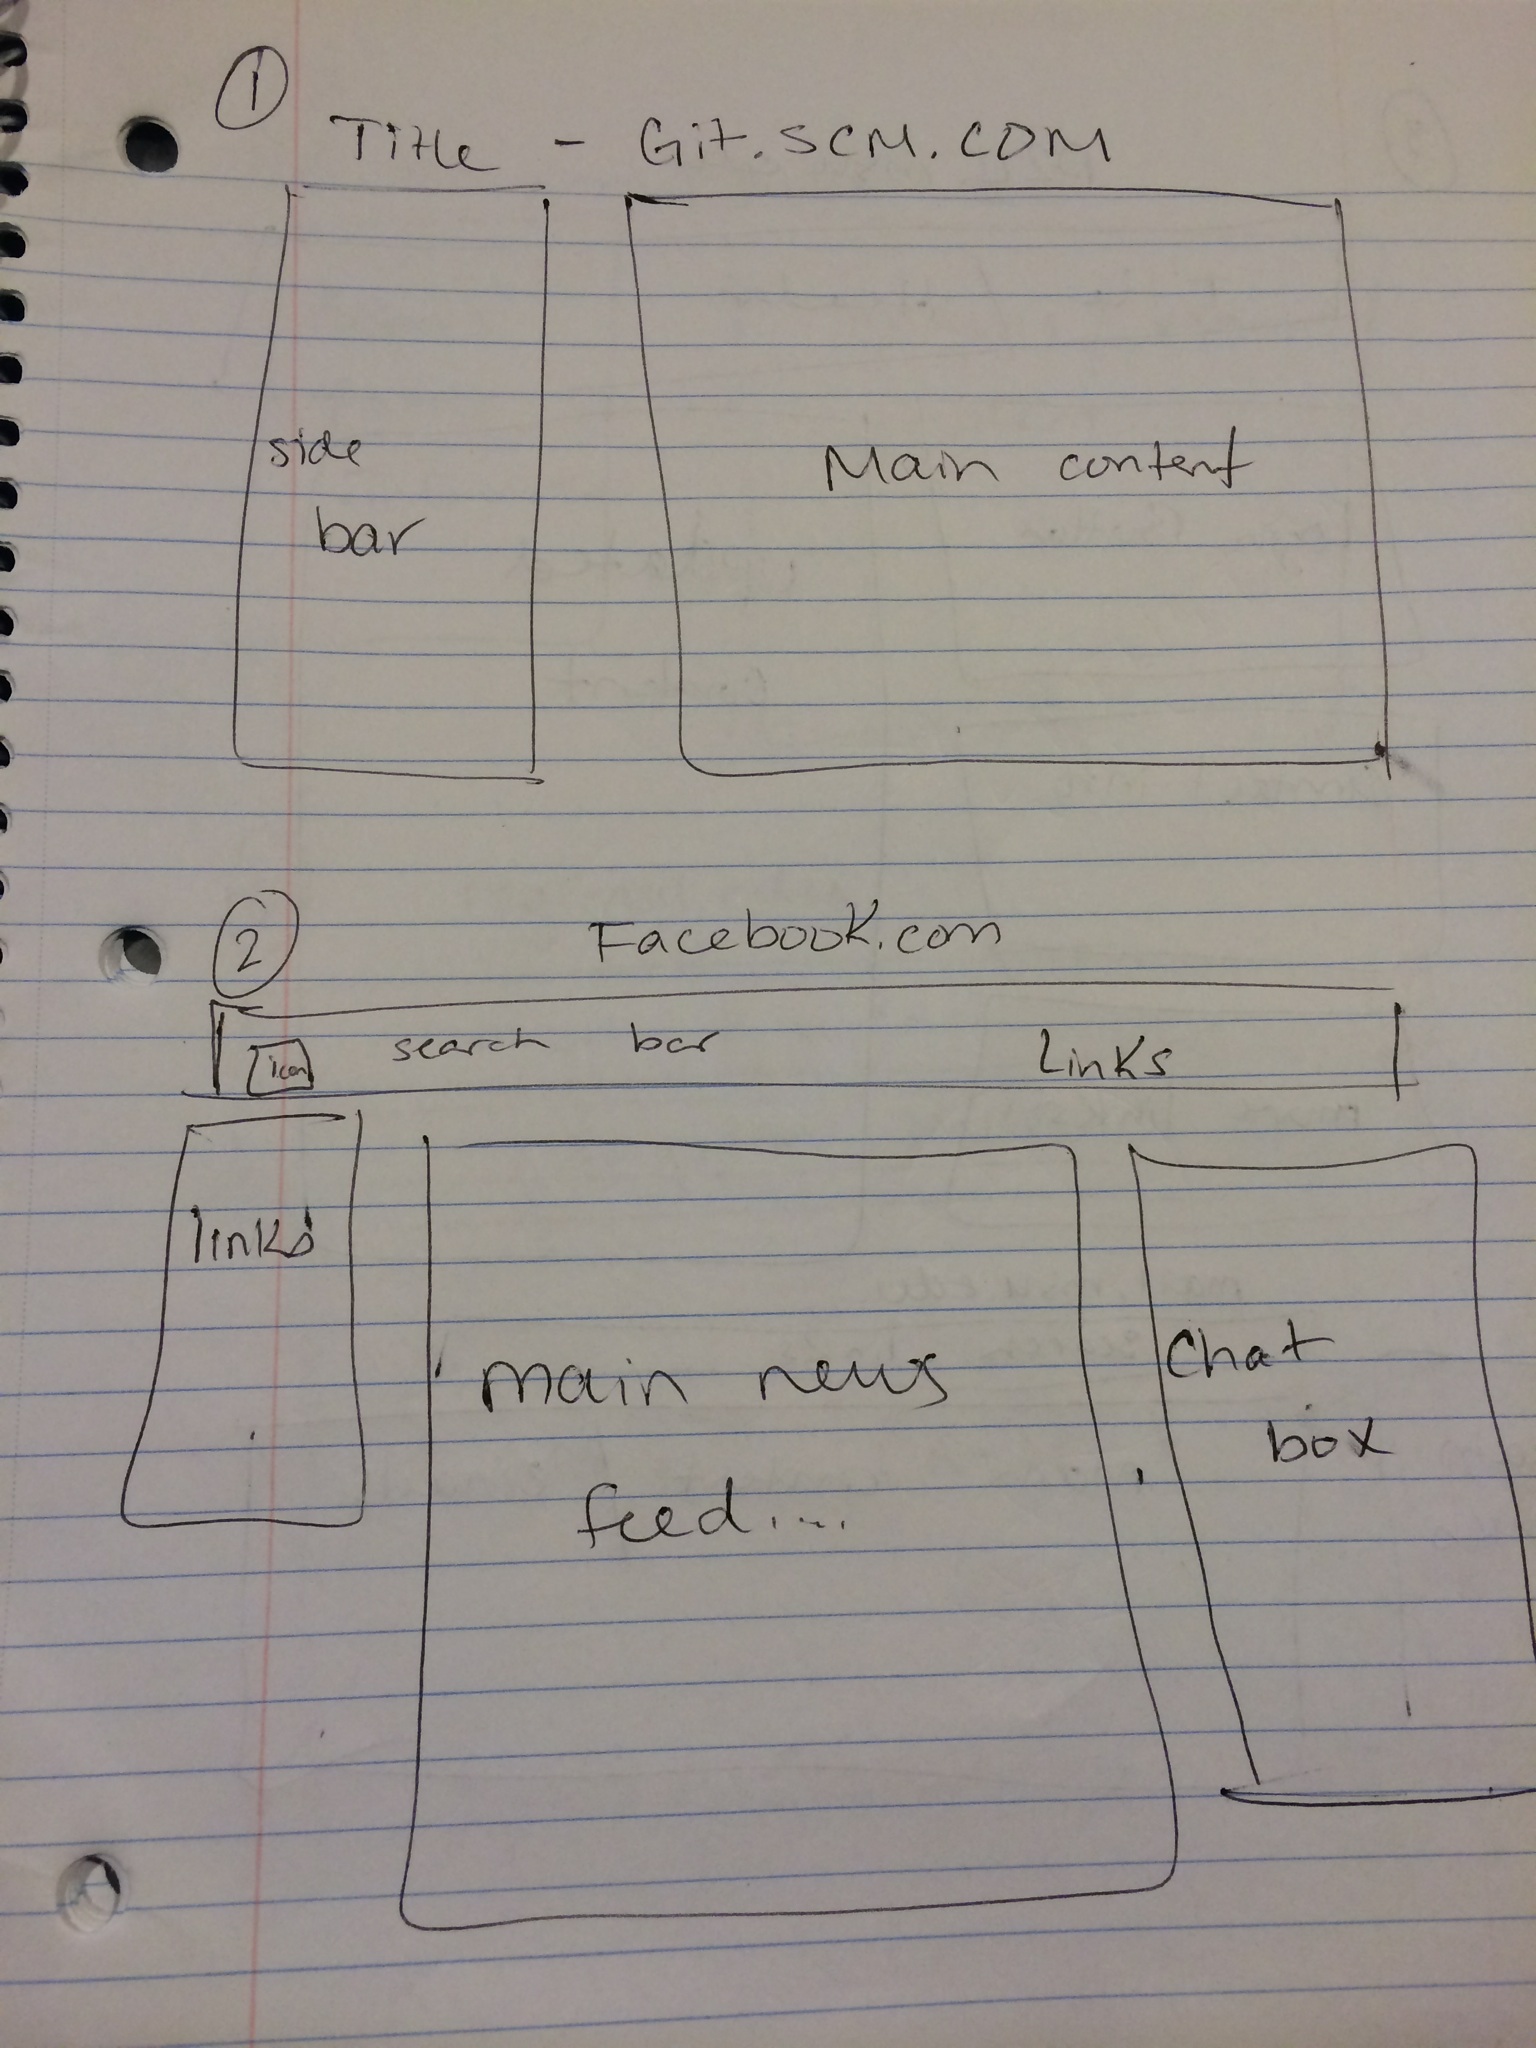 1
Title - Git.SCM.COM
side
bar
Main content
2
Facebook.com
icon search bar Links
links
main news
feed....
Chat
box